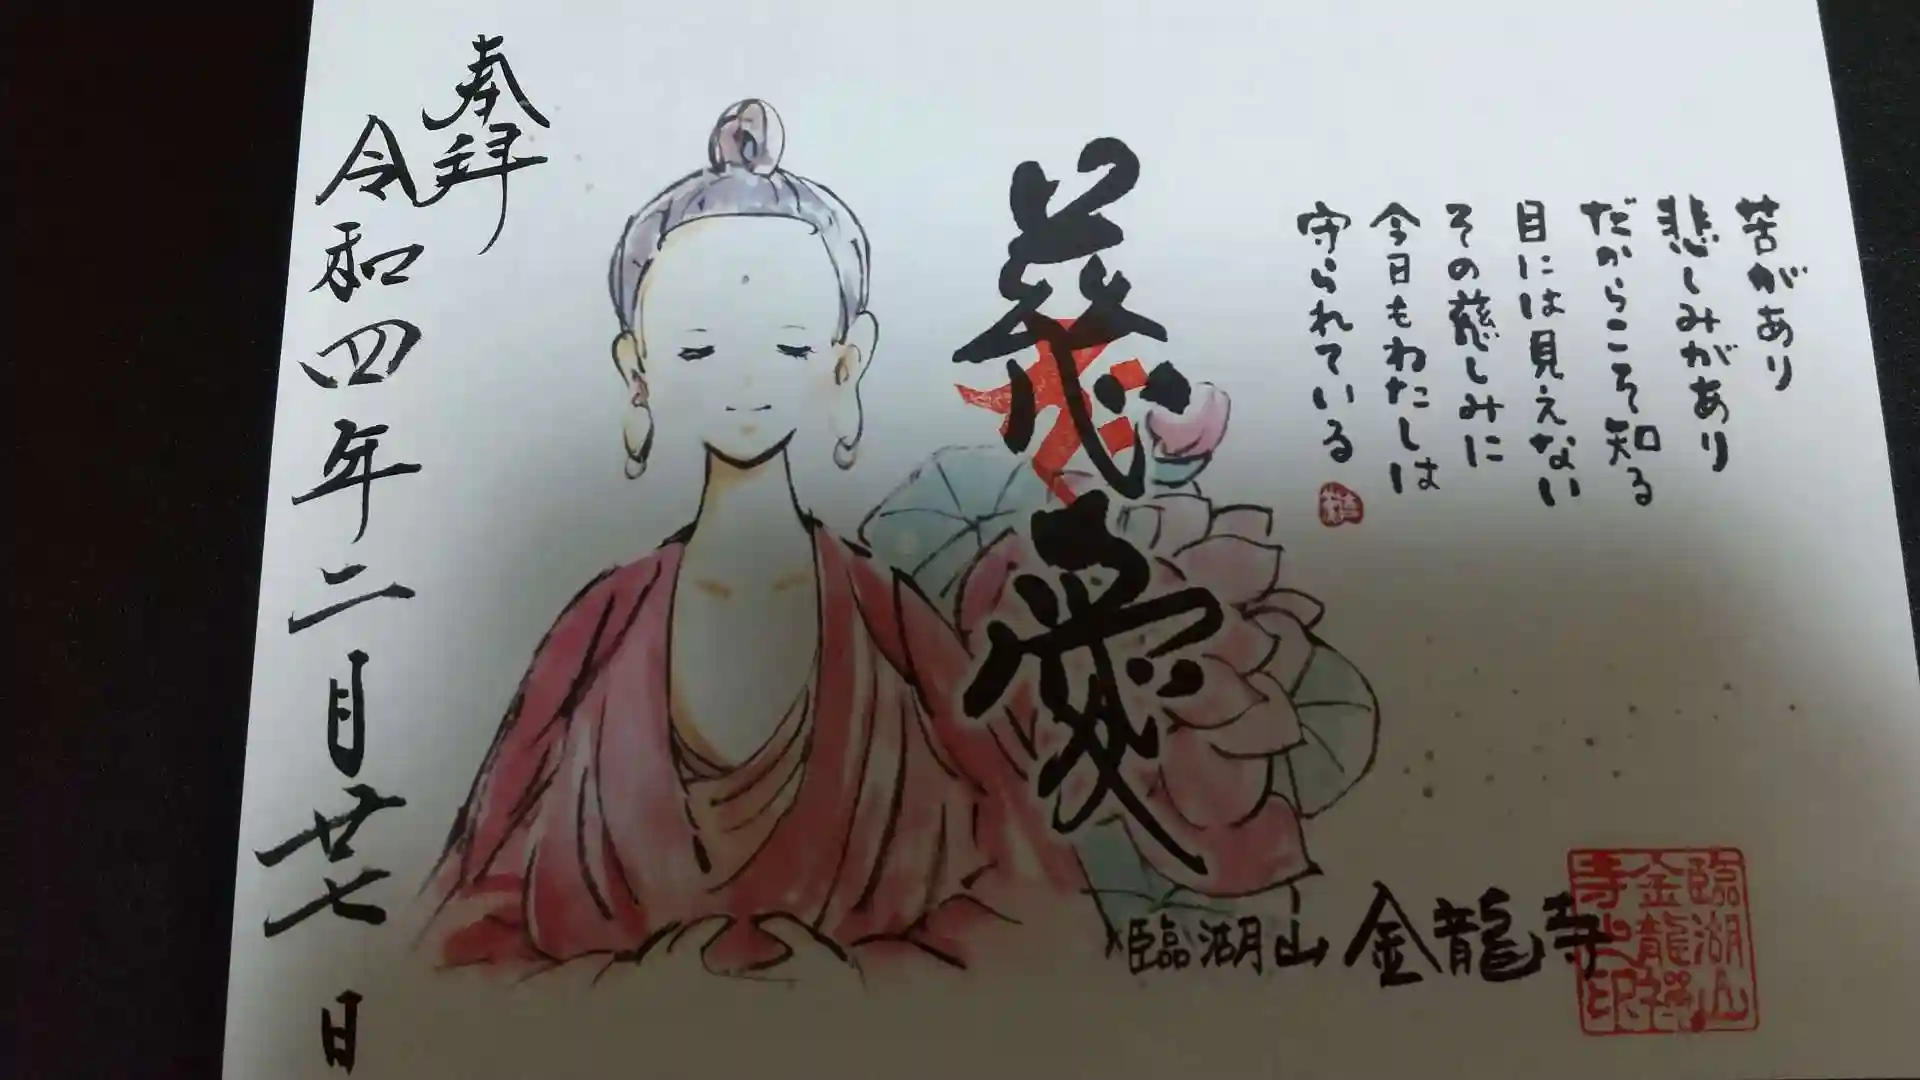 苦があり
悲しみがあり
だからこそ知る
目には見えない
その慈しみに
今日もわたしは
守られている
慈愛
奉拝
令和四年二月廿七日
臨湖山 金龍寺
臨湖山
金龍禅
寺之印